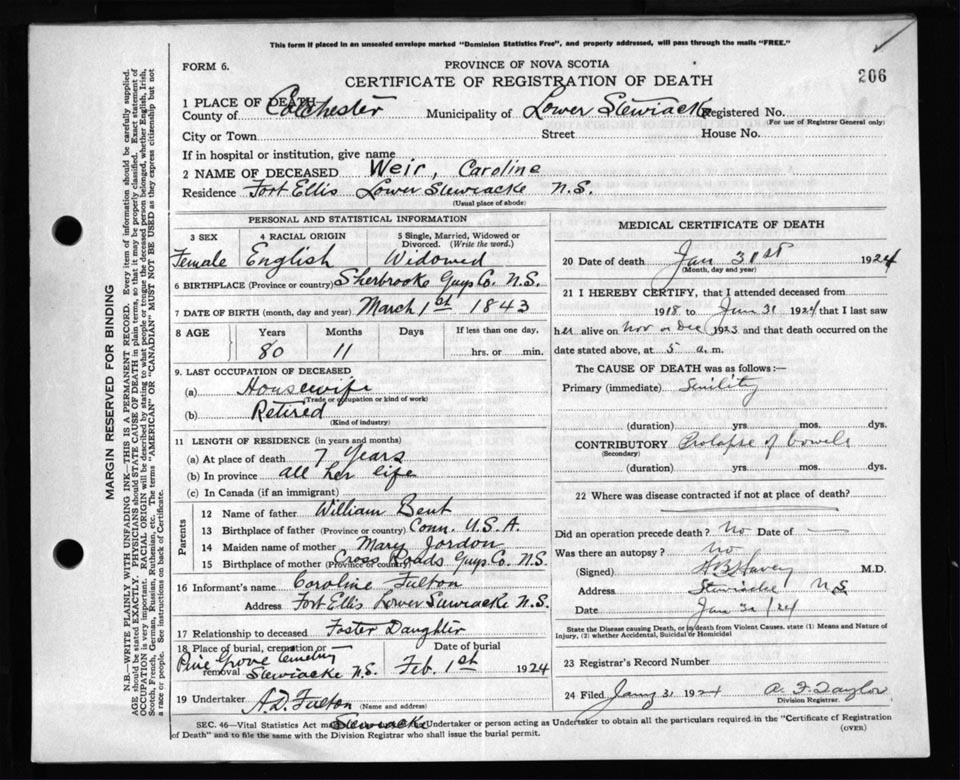 This form if placed in an unsealed envelope marked "Dominion Statistics Free", and properly addressed, will pass through the mails "FREE."
FORM 6.
PROVINCE OF NOVA SCOTIA
CERTIFICATE OF REGISTRATION OF DEATH
206
1 PLACE OF DEATH
County of Colchester Municipality of Lower Stewiacke Registered No.
(For use of Registrar General only)
City or Town Street House No.
If in hospital or institution, give name
2 NAME OF DECEASED Weir, Caroline
Residence Fort Ellis Lower Stewiacke N.S.
(Usual place of abode)
PERSONAL AND STATISTICAL INFORMATION
3 SEX 4 RACIAL ORIGIN 5 Single, Married, Widowed or Divorced. (Write the word.)
Female English Widowed
6 BIRTHPLACE (Province or country) Sherbrooke Guys Co. N.S.
7 DATE OF BIRTH (month, day and year) March 1st 1843
8 AGE Years Months Days If less than one day,
80 11 hrs. or min.
9. LAST OCCUPATION OF DECEASED
(a) Housewife
(Trade or occupation or kind of work)
(b) Retired
(Kind of industry)
11 LENGTH OF RESIDENCE (in years and months)
(a) At place of death 7 Years
(b) In province all her life
(c) In Canada (if an immigrant)
Parents
12 Name of father William Bent
13 Birthplace of father (Province or country) Conn. U.S.A.
14 Maiden name of mother Mary Jordon
15 Birthplace of mother (Province or country) Cross Roads Guys Co. N.S.
16 Informant's name Caroline Fulton
Address Fort Ellis Lower Stewiacke N.S.
17 Relationship to deceased Foster Daughter
18 Place of burial, cremation or removal Date of burial
Pine Grove Cemetery
Stewiacke N.S. Feb. 1st 1924
19 Undertaker A.D. Fulton
(Name and address)
Stewiacke
MEDICAL CERTIFICATE OF DEATH
20 Date of death Jan 31st 1924
(Month, day and year)
21 I HEREBY CERTIFY, that I attended deceased from
1918 to Jan 31 1924 that I last saw
her alive on Nov or Dec 1923 and that death occurred on the
date stated above, at 5 a.m.
The CAUSE OF DEATH was as follows:—
Primary (immediate) Senility
(duration) yrs. mos. dys.
CONTRIBUTORY Prolapse of bowels
(Secondary)
(duration) yrs. mos. dys.
22 Where was disease contracted if not at place of death?
Did an operation precede death? No Date of —
Was there an autopsy? No
(Signed) M.D.
Address Stewiacke N.S.
Date Jan 31/24
State the Disease causing Death, or in death from Violent Causes, state (1) Means and Nature of
Injury, (2) whether Accidental, Suicidal or Homicidal
23 Registrar's Record Number
24 Filed Jany 31 1924 A. F. Taylor
Division Registrar.
SEC. 46—Vital Statistics Act Undertaker or person acting as Undertaker to obtain all the particulars required in the "Certificate of Registration
of Death" and to file the same with the Division Registrar who shall issue the burial permit.
(OVER)
MARGIN RESERVED FOR BINDING
N.B.—WRITE PLAINLY WITH UNFADING INK—THIS IS A PERMANENT RECORD. Every item of information should be carefully supplied.
AGE should be stated EXACTLY. PHYSICIANS should STATE CAUSE OF DEATH in plain terms, so that it may be properly classified. Exact statement of
OCCUPATION is very important. RACIAL ORIGIN will be described by stating to what people or tongue the deceased person belonged, whether English, Irish,
Scotch, French, German, Russian, Ruthenian, etc. The terms "AMERICAN" OR "CANADIAN" MUST NOT BE USED as they express citizenship but not
a race or people. See instructions on back of Certificate.